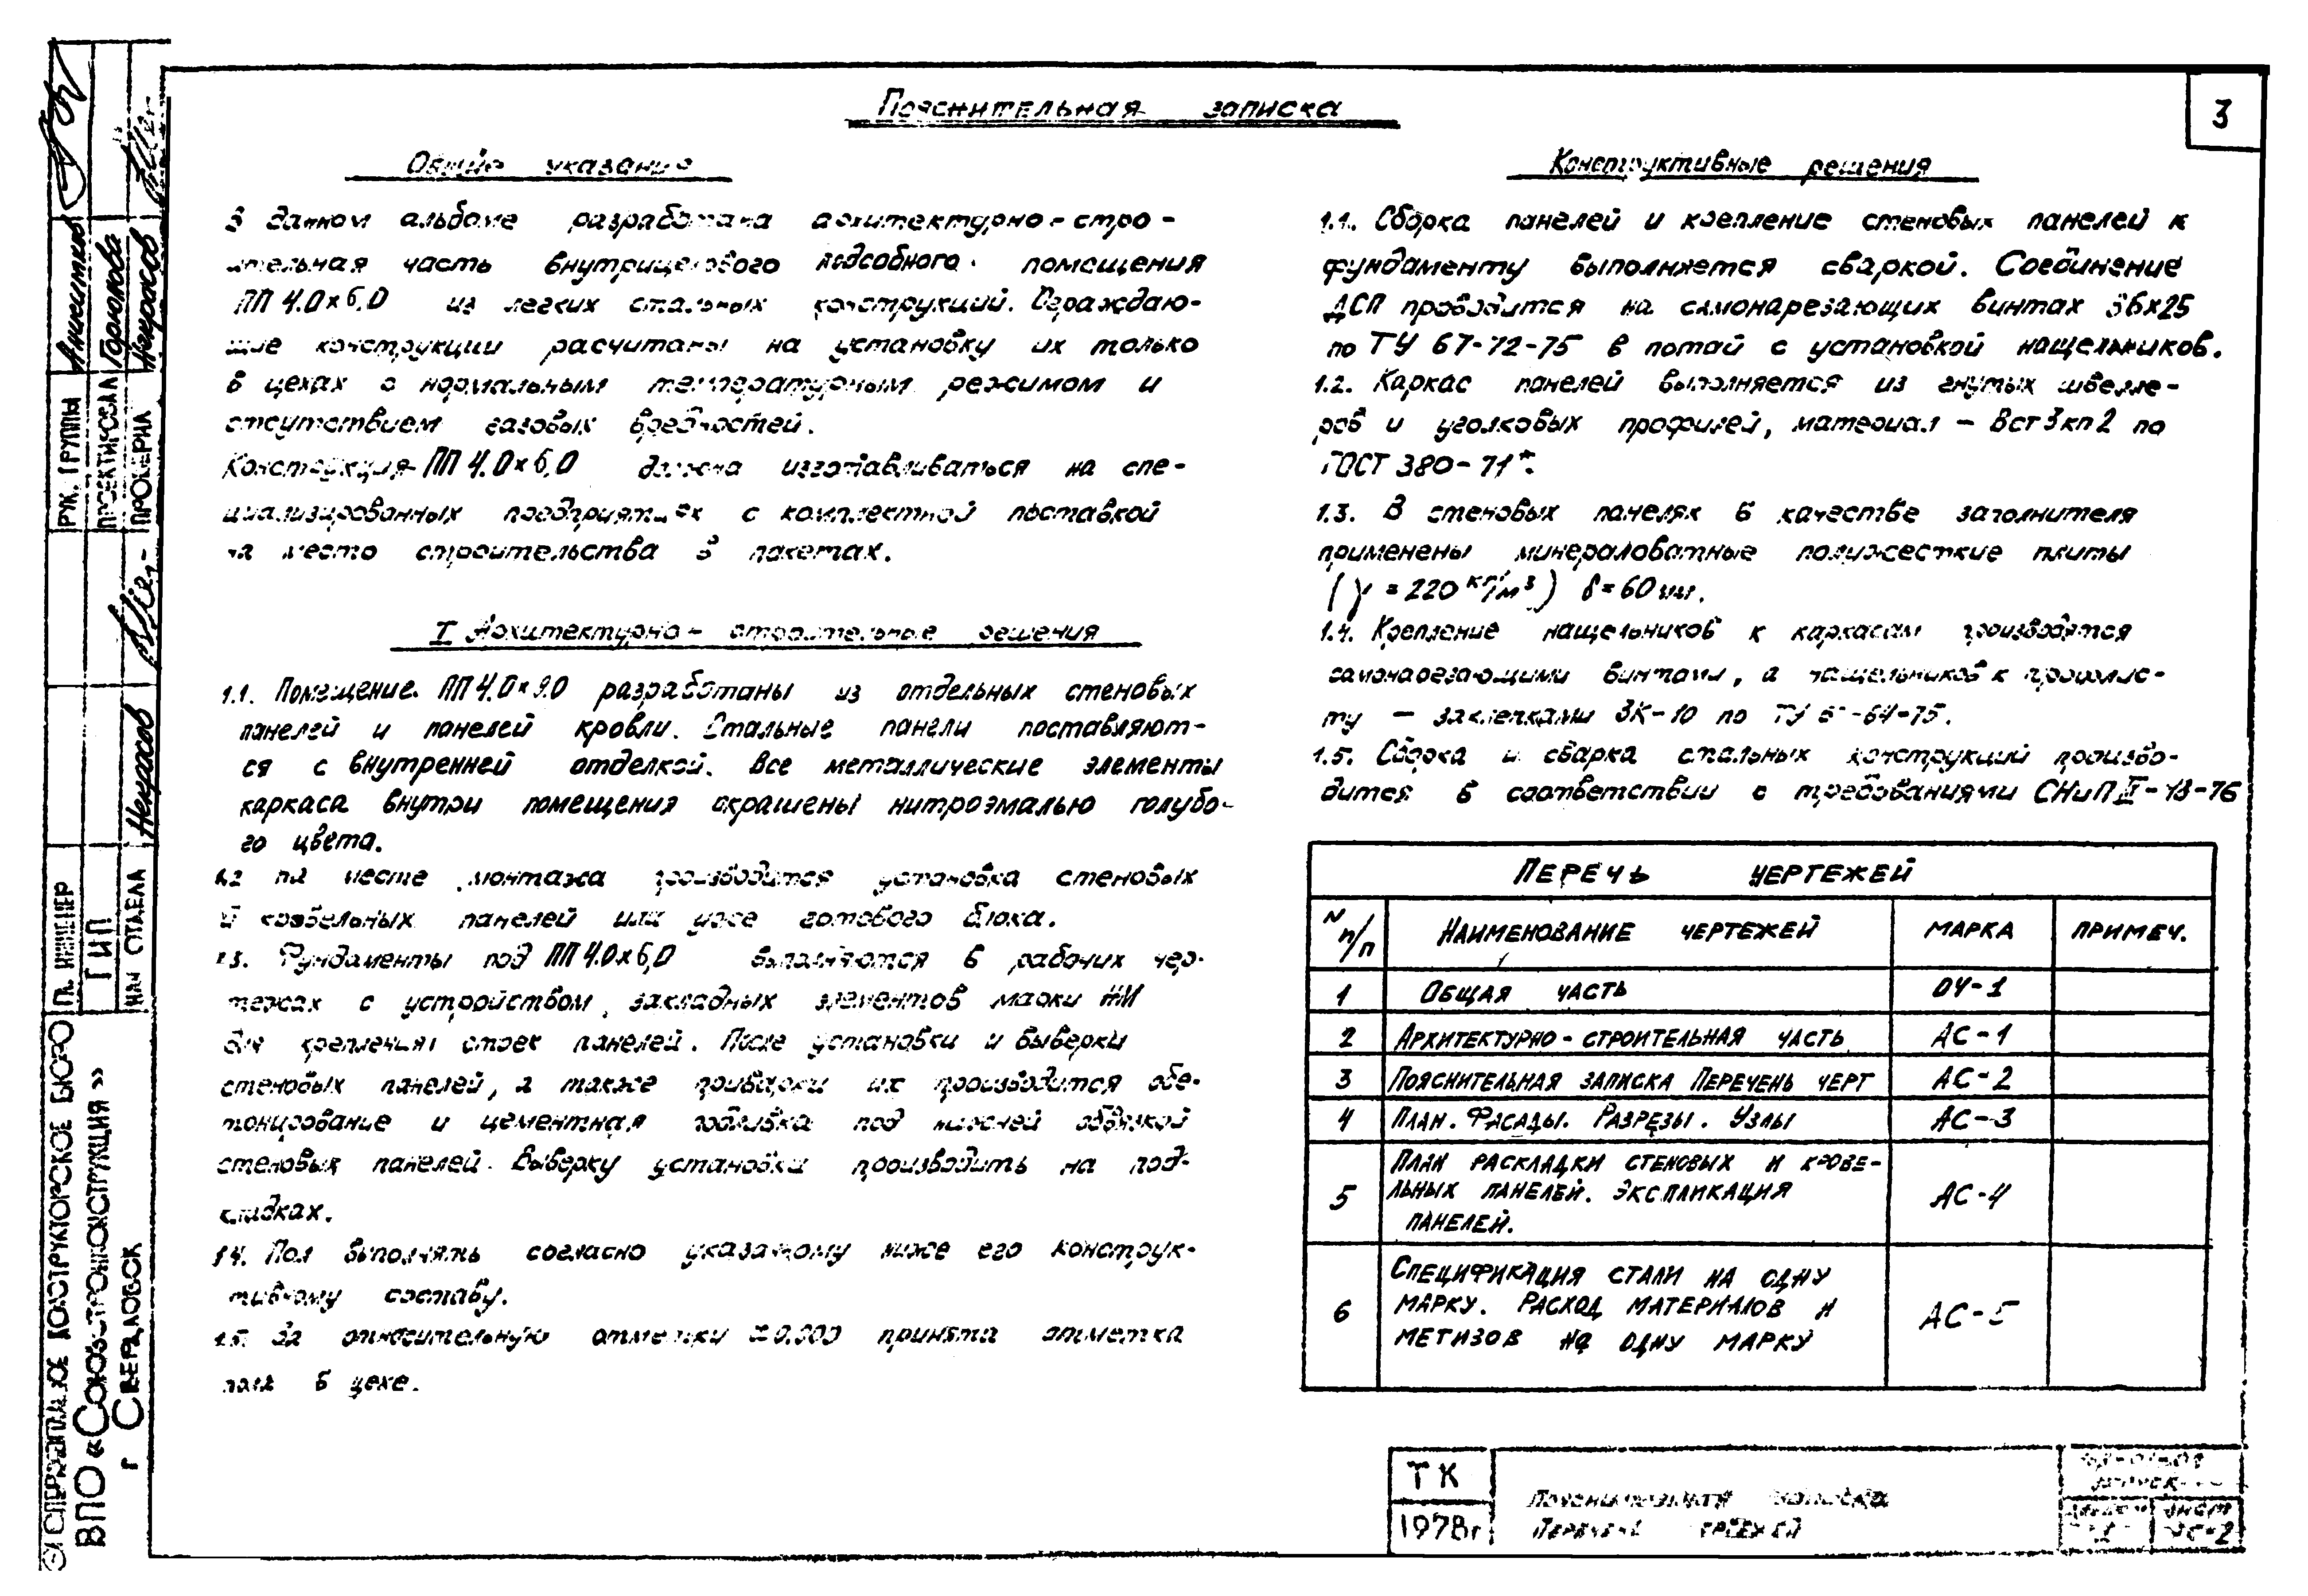 Пояснительная записка
3
Общие указания
В данном альбоме разработана архитектурно-стро-
ительная часть внутрицехового подсобного помещения
ПП 4.0×6,0 из легких стальных конструкций. Ограждаю-
щие конструкции расчитаны на установку их только
в цехах с нормальным температурным режимом и
отсутствием газовых вредностей.
Конструкция ПП 4.0×6,0 должна изготавливаться на спе-
циализированных предприятиях с комплектной поставкой
на место строительства в пакетах.
I Архитектурно-строительные решения
1.1. Помещение ПП 4.0×9.0 разработаны из отдельных стеновых
панелей и панелей кровли. Стальные панели поставляют-
ся с внутренней отделкой. Все металлические элементы
каркаса внутри помещения окрашены нитроэмалью голубо-
го цвета.
1.2 На месте монтажа производится установка стеновых
и кровельных панелей или уже готового блока.
1.3. Фундаменты под ПП 4.0×6,0 выполняются в рабочих чер-
тежах с устройством закладных элементов марки МИ
для крепления стоек панелей. После установки и выверки
стеновых панелей, а также приварки их производится обе-
тонирование и цементная подливка под нижней обвязкой
стеновых панелей. Выверку установки производить на под-
кладках.
1.4. Пол выполнять согласно указанному ниже его конструк-
тивному составу.
1.5. За относительную отметку ±0.000 принята отметка
пола в цехе.
Конструктивные решения
1.1. Сборка панелей и крепление стеновых панелей к
фундаменту выполняется сваркой. Соединение
ДСП проводится на самонарезающих винтах В6×25
по ТУ 67-72-75 в потай с установкой нащельников.
1.2. Каркас панелей выполняется из гнутых швелле-
ров и уголковых профилей, материал – Вст3кп2 по
ГОСТ 380-71*.
1.3. В стеновых панелях в качестве заполнителя
применены минераловатные полужесткие плиты
(γ=220 кг/м³) δ=60мм.
1.4. Крепление нащельников к каркасам производятся
самонарезающими винтами, а нащельников к профлис-
ту – заклепками ЗК-10 по ТУ
1.5. Сборка и сварка стальных конструкций произво-
дится в соответствии с требованиями СНиП III-18-76
Перечь чертежей
N п/п Наименование чертежей Марка Примеч.
1 Общая часть ОУ-1
2 Архитектурно-строительная часть АС-1
3 Пояснительная записка Перечень черт АС-2
4 План. Фасады. Разрезы. Узлы АС-3
5 План раскладки стеновых и крове-
льных панелей. Экспликация
панелей. АС-4
6 Спецификация стали на одну
марку. Расход материалов и
метизов на одну марку АС-5
ТК
1978г
Пояснительная записка
Перечень чертежей
лист
АС-2
Рук. группы Аникитин
Проектировал Горюнова
Проверил Некрасов
Гл. инженер
ГИП
Нач отдела Некрасов
конструкторское бюро
ВПО «Союзстройконструкция»
г Свердловск